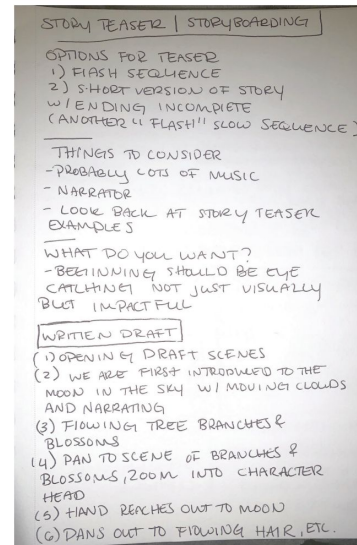 STORY TEASER | STORYBOARDING
OPTIONS FOR TEASER
1) FLASH SEQUENCE
2) SHORT VERSION OF STORY
W/ ENDING INCOMPLETE
(ANOTHER "FLASH" SLOW SEQUENCE)
THINGS TO CONSIDER
- PROBABLY LOTS OF MUSIC
- NARRATOR
- LOOK BACK AT STORY TEASER
EXAMPLES
WHAT DO YOU WANT?
- BEGINNING SHOULD BE EYE
CATCHING NOT JUST VISUALLY
BUT IMPACTFUL
WRITTEN DRAFT
(1) OPENING DRAFT SCENES
(2) WE ARE FIRST INTRODUCED TO THE
MOON IN THE SKY W/ MOVING CLOUDS
AND NARRATING
(3) FLOWING TREE BRANCHES &
BLOSSOMS
(4) PAN TO SCENE OF BRANCHES &
BLOSSOMS, ZOOM INTO CHARACTER
HEAD
(5) HAND REACHES OUT TO MOON
(6) PANS OUT TO FLOWING HAIR, ETC.